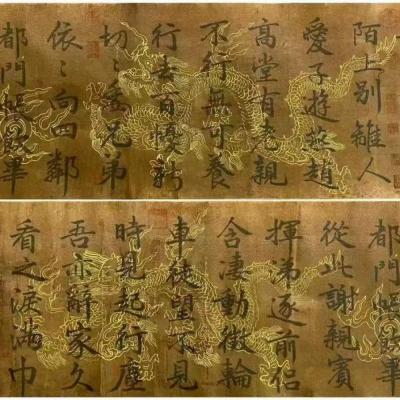 陌上別離人
愛子遊燕趙
高堂有老親
不行無可養
行去百憂新
切〻委兄弟
依〻向四鄰
都門帳飲畢
都門帳飲畢
從此謝親賓
揮涕逐前侶
含淒動徵輪
車徒望不見
時見起行塵
吾亦辭家久
看之淚滿巾